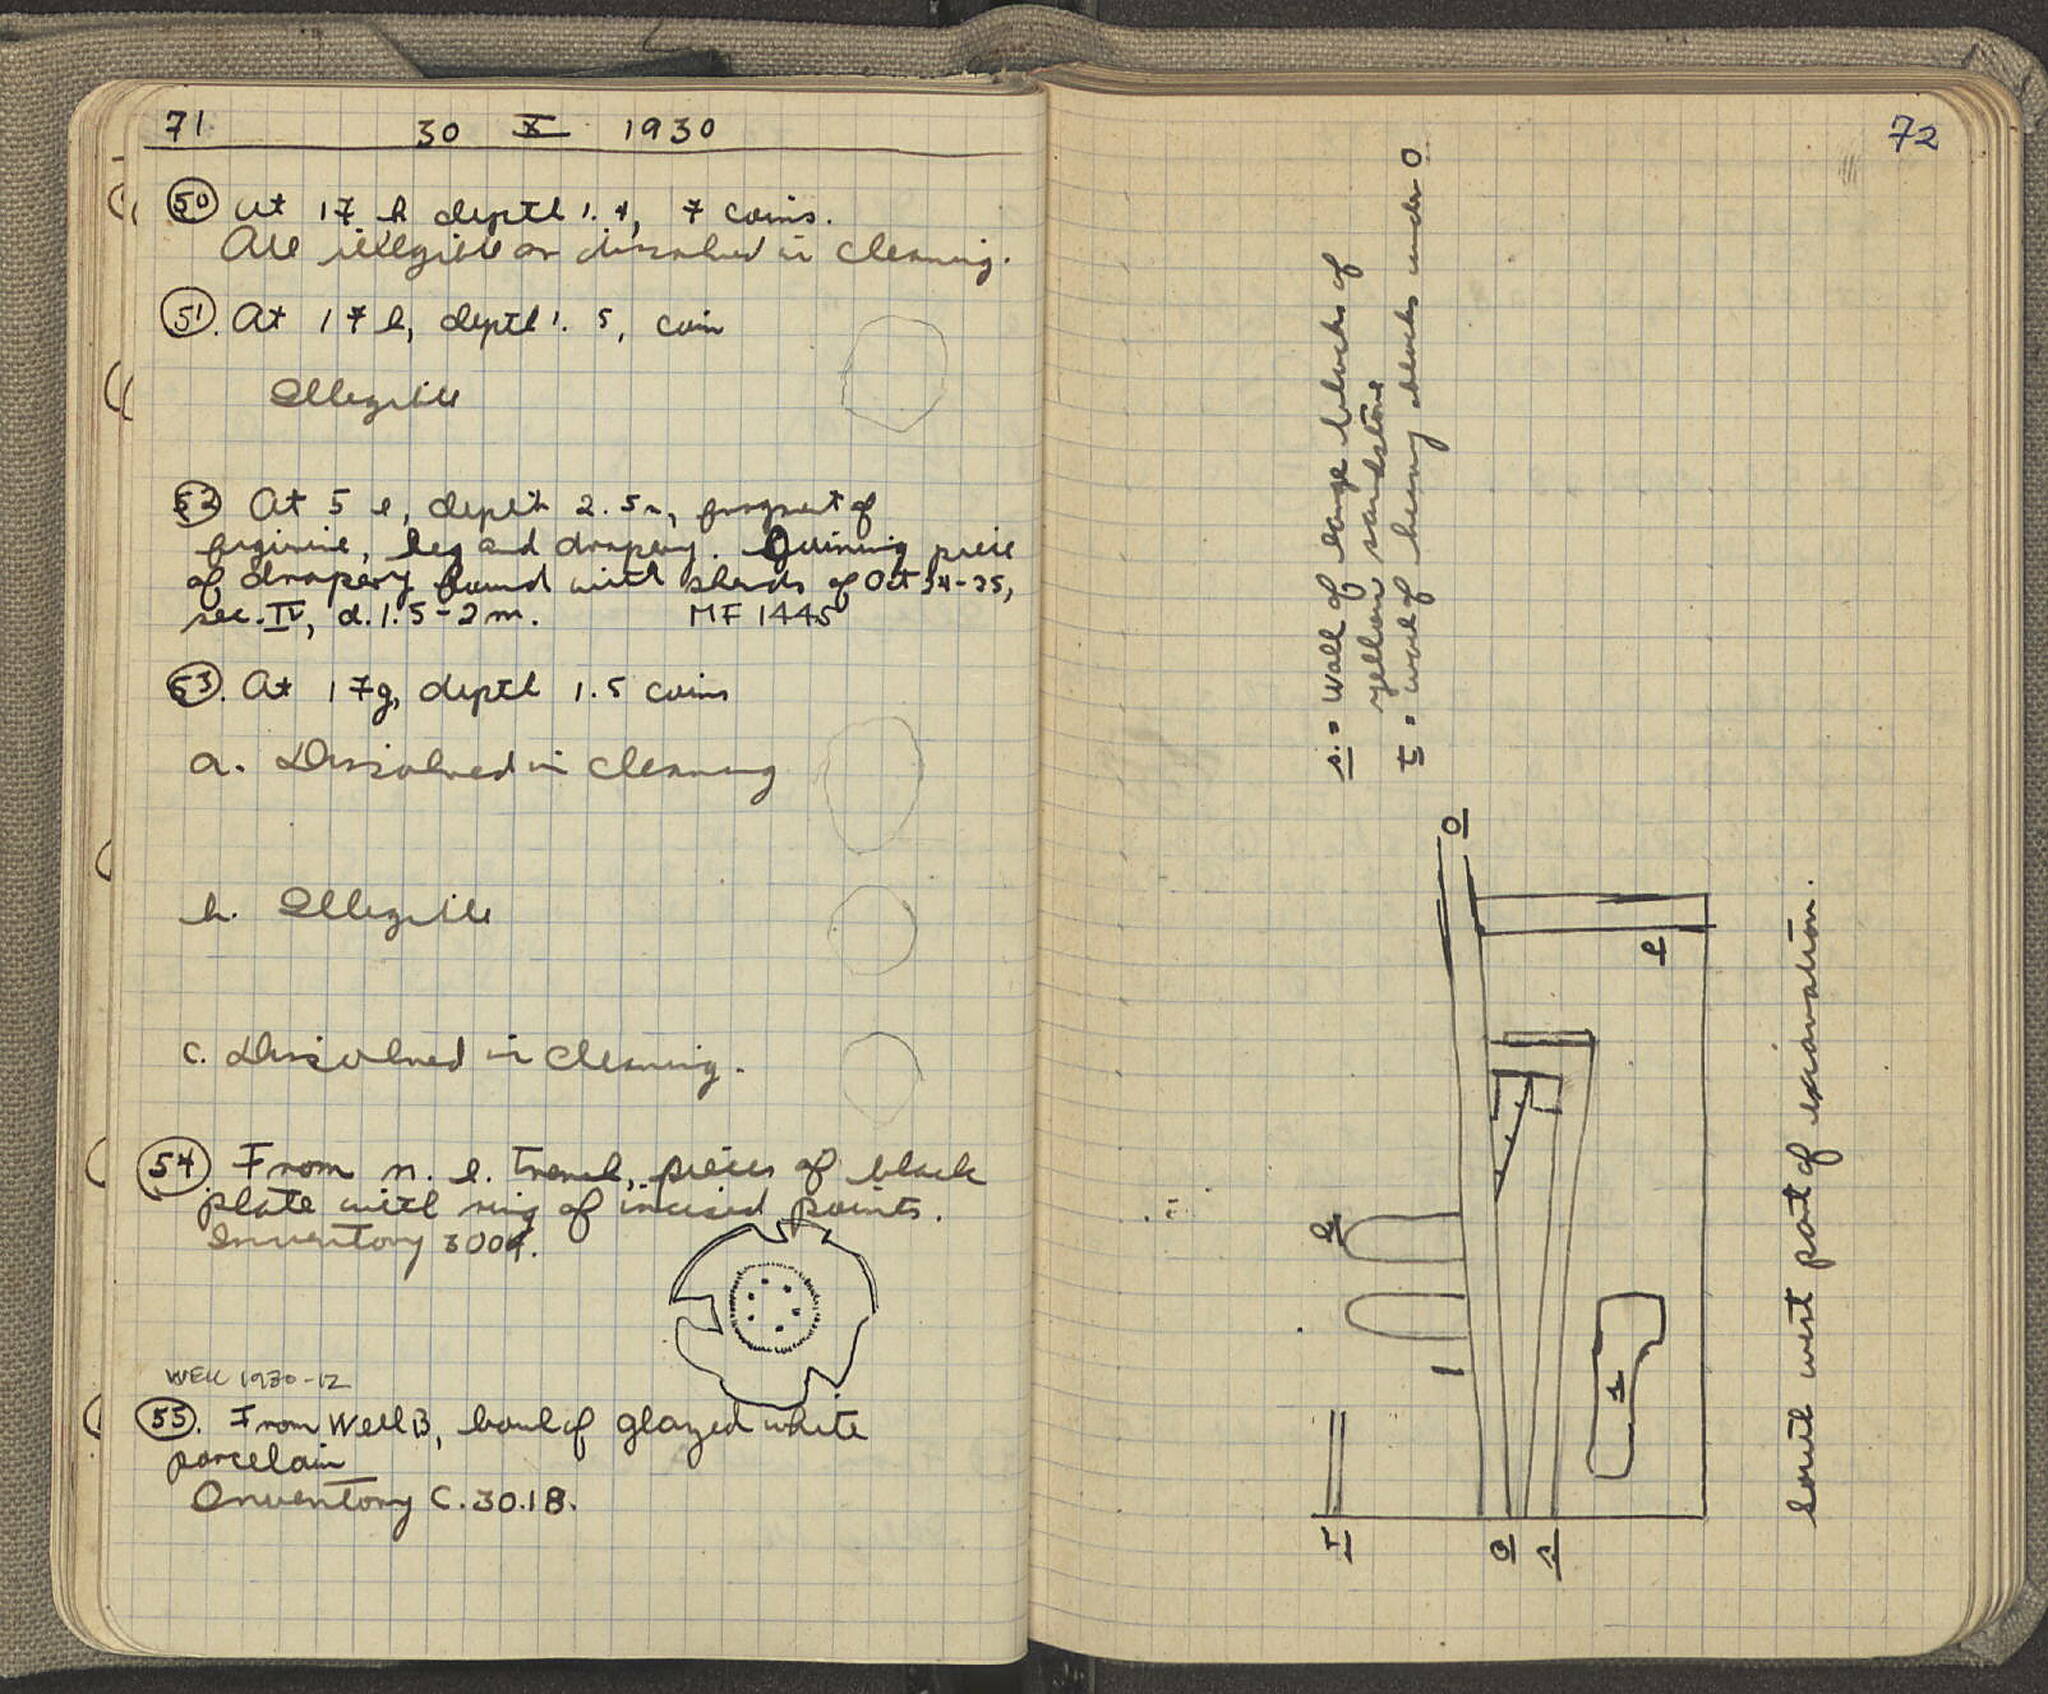 71 30 X 1930
50 At 17 h depth 1.4, 7 coins.
All illegible or dissolved in cleaning.
51. At 17 h, depth 1.5, coin
Illegible
52 At 5 e, depth 2.5m, fragment of
figurine, leg and drapery. Joining piece
of drapery found with sherds of Oct 24-25,
sec. IV, d. 1.5-2m. MF 1445
53. At 17g, depth 1.5 coins
a. Dissolved in cleaning
b. Illegible
c. Dissolved in cleaning.
54 From n. e. trench, pieces of black
plate with ring of incised points.
Inventory 3004.
WELL 1930-12
55. From Well B, bowl of glazed white
porcelain
Inventory C.30.18.
72
s. = wall of large blocks of
yellow sandstone
t = wall of heavy blocks under o
o
p
q
r
t
o
s
South west part of excavation.